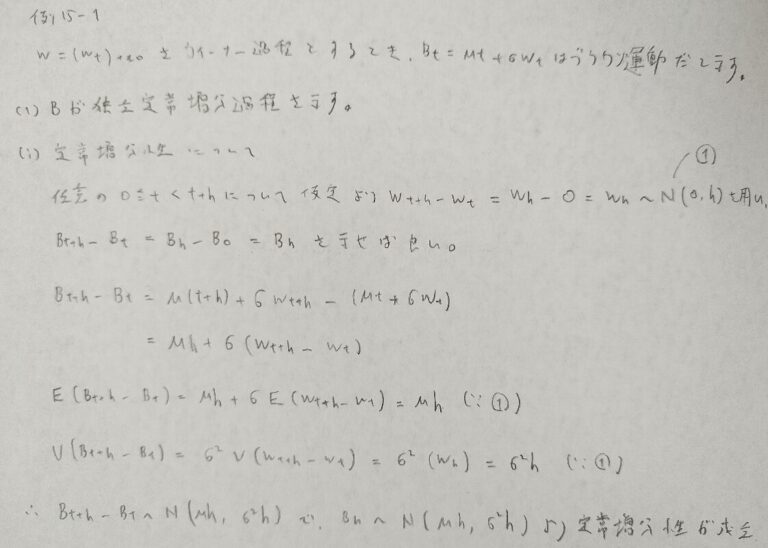 例15-1
W=(Wt)t≧0をウィーナー過程とするとき、Bt=μt+σWtはブラウン運動だと示す。
(1) Bが独立定常増分過程を示す。
(i) 定常増分性について
①
任意の0≦t<t+hについて仮定よりWt+h-Wt=Wh-0=Wh~N(0,h)を用い、
Bt+h-Bt=Bh-B0=Bhを示せば良い。
Bt+h-Bt=μ(t+h)+σWt+h-(μt+σWt)
=μh+σ(Wt+h-Wt)
E(Bt+h-Bt)=μh+σE(Wt+h-Wt)=μh (∵①)
V(Bt+h-Bt)=σ²V(Wt+h-Wt)=σ²(Wh)=σ²h (∵①)
∴Bt+h-Bt~N(μh,σ²h)で、Bh~N(μh,σ²h)より定常増分性が成立